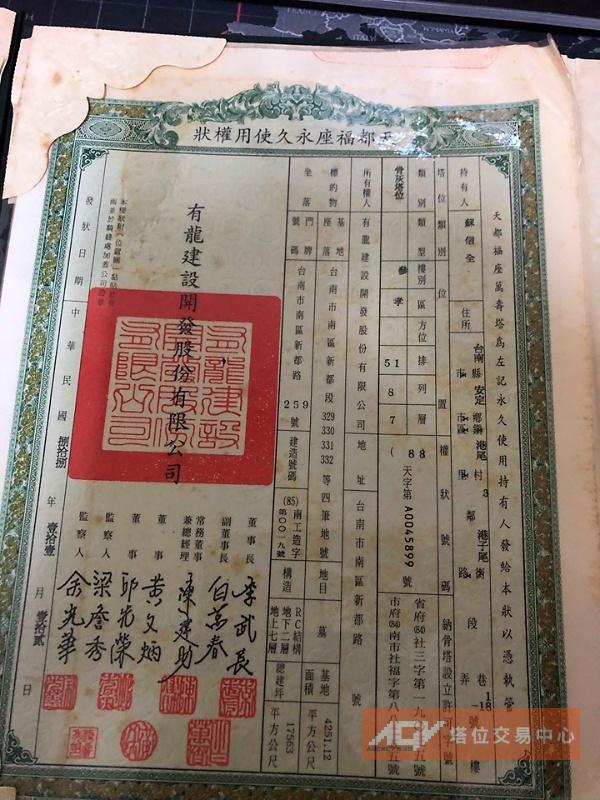 天都福座永久使用權狀
天都福座萬壽塔爲左記永久使用持有人發給本狀以憑執管
持有人 蘇信全 住所 台南縣市 安定鄉鎮市區 港尾村里 3鄰 港子尾街路 段 巷弄 18號 樓
塔位類別 位置 權狀號碼 納骨塔設立許可字號
類別 類型 樓別 區 方位 排 列 層
骨灰塔位 參 孝 51 8 7 (88)天字第A0045899號
所有權人 有龍建設開發股份有限公司 地址 台南市南區新都路 號
標的物 基地座落 台南市南區新都段329 330 331 332等四筆地號 地目 墓 基地面積 4251.12 平方公尺
坐落 門牌號碼 台南市南區新都路259 建造號碼 (85)南工造字第0019號 構造 RC結構 地下二層 地上七層 總建坪 17563 平方公尺
有龍建設開發股份有限公司
有龍建設開發股份有限公司
董事長 李武長
副董事長 白萬春
常務董事兼總經理 陳建助
董事 黃文炳
董事 邱光榮
監察人 梁詹秀
監察人 余光華
發狀日期 中華民國 捌拾捌 年 壹拾壹 月 壹拾貳 日
AGV 塔位交易中心